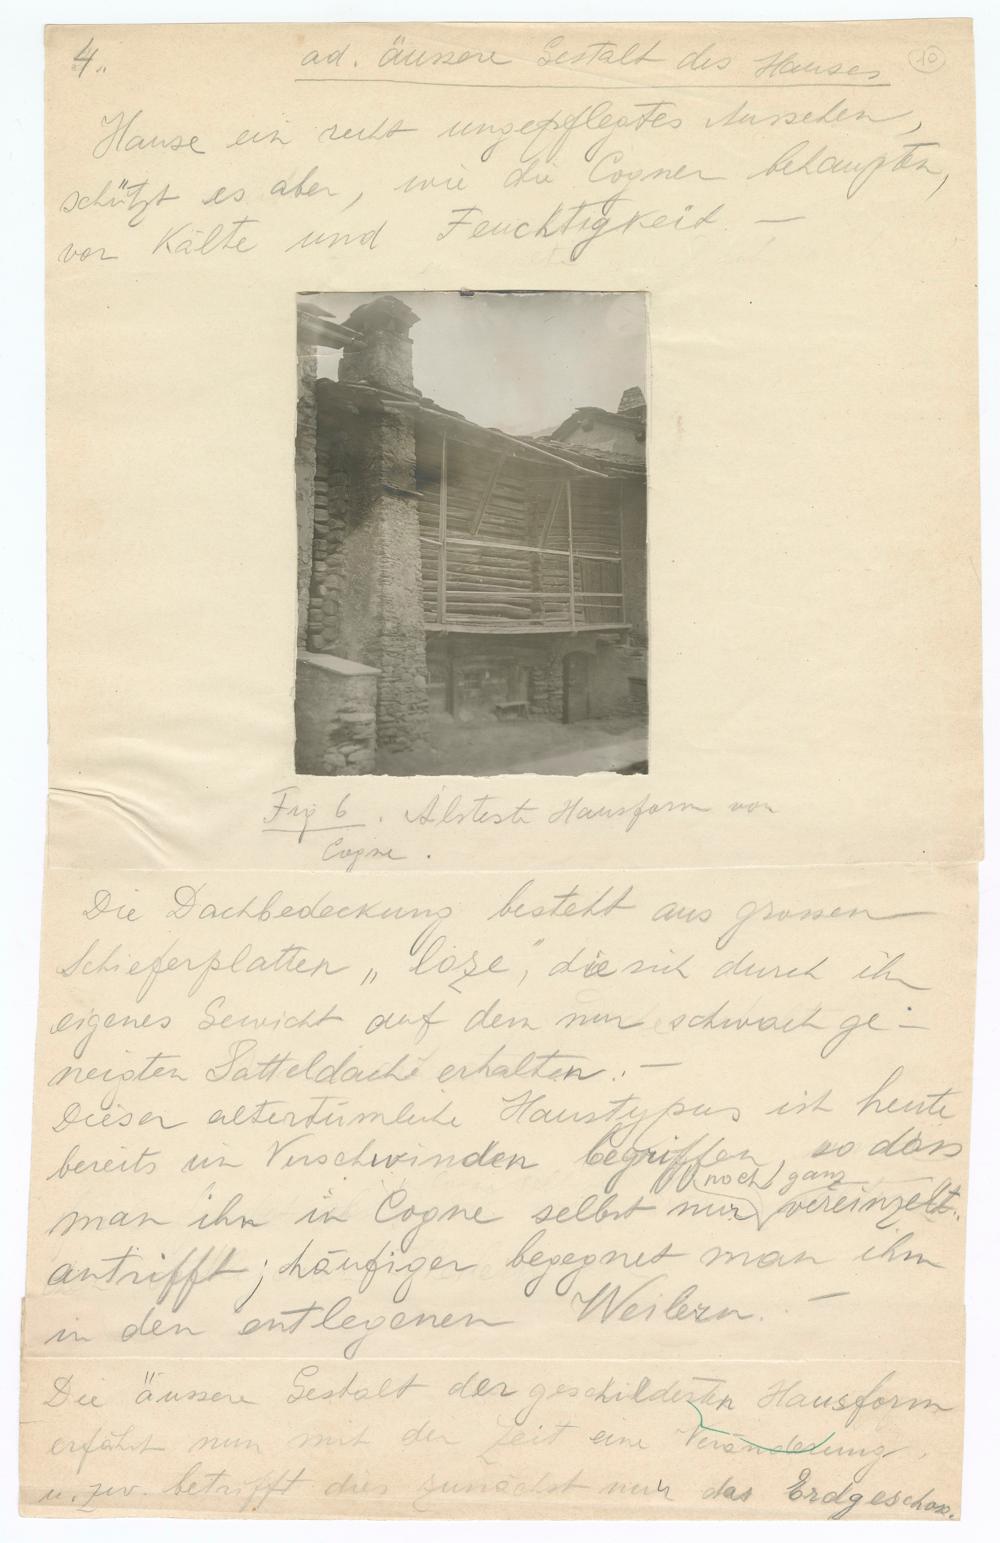 4. ad. äussere Gestalt des Hauses 10
Hause ein recht ungepflegtes Aussehen,
schützt es aber, wie die Cogner behaupten,
vor Kälte und Feuchtigkeit —
Fig 6. Älteste Hausform von
Cogne.
Die Dachbedeckung besteht aus grossen
Schieferplatten „loze", die sich durch ihr
eigenes Gewicht auf dem nur schwach ge-
neigten Satteldache erhalten. —
Dieser altertümliche Haustypus ist heute
bereits im Verschwinden begriffen, so dass
noch ganz
man ihn in Cogne selbst nur vereinzelt
antrifft; häufiger begegnet man ihm
in den entlegenen Weilern. —
Die äussere Gestalt der geschilderten Hausform
erfährt nun mit der Zeit eine Veränderung,
u. zw. betrifft dies zunächst nur das Erdgeschoss.